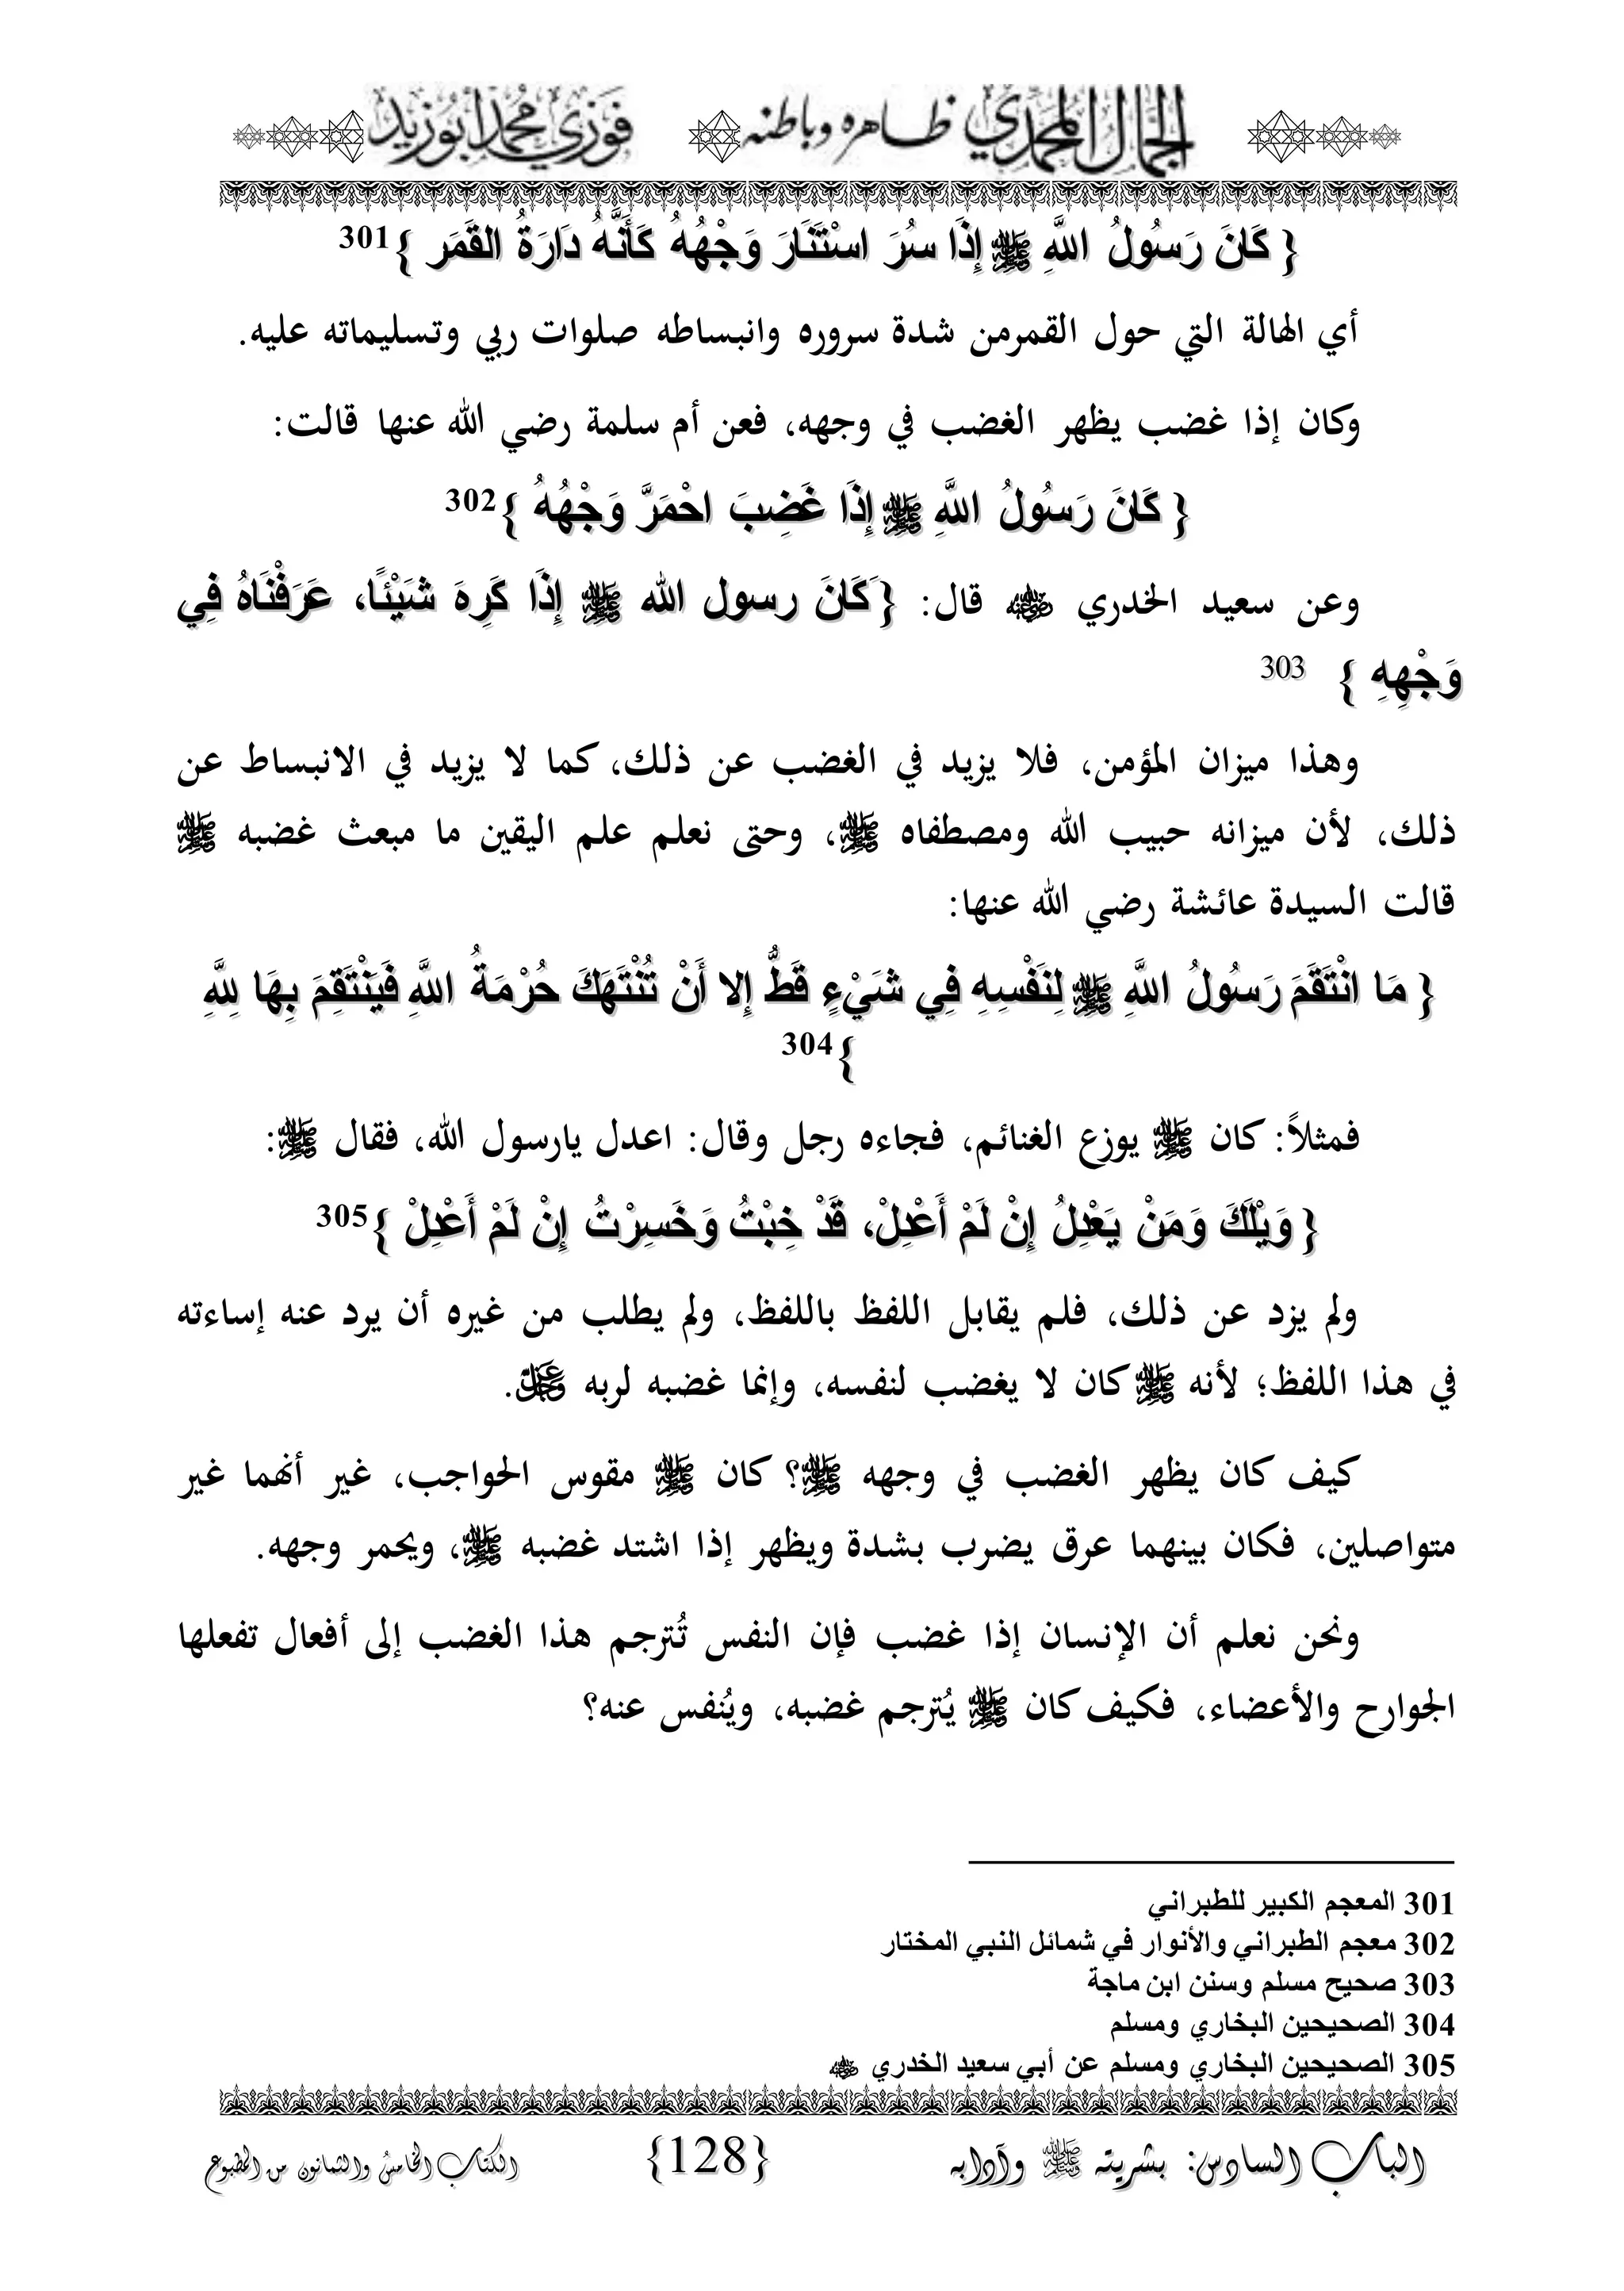 الجمال المحمدي ظاهره وباطنه فوزي محمد أبوزيد
{ كَانَ رَسُولُ اللَّهِ ﷺ إِذَا سُرَ اسْتَنَارَ وَجْهُهُ كَأَنَّهُ دَارَةُ القَمَر }301
أي الهالة التي حول القمرمن شدة سروره وانبساطه صلوات ربي وتسليماته عليه.
وكان إذا غضب يظهر الغضب في وجهه، فعن أم سلمة رضي الله عنها قالت:
{ كَانَ رَسُولُ اللَّهِ ﷺ إِذَا غَضِبَ احْمَرَّ وَجْهُهُ }302
وعن سعيد الخدري ؓ قال: {َكَانَ رسول الله ﷺ إِذَا كَرِهَ شَيْئًا، عَرَفْنَاهُ فِي
وَجْهِهِ } 303
وهذا ميزان المؤمن، فلا يزيد في الغضب عن ذلك، كما لا يزيد في الانبساط عن
ذلك، لأن ميزانه حبيب الله ومصطفاه ﷺ، وحتى نعلم علم اليقين ما مبعث غضبه ﷺ
قالت السيدة عائشة رضي الله عنها:
{ مَا انْتَقَمَ رَسُولُ اللَّهِ ﷺ لِنَفْسِهِ فِي شَيْءٍ قَطُّ إِلا أَنْ تُنْتَهَكَ حُرْمَةُ اللَّهِ فَيَنْتَقِمَ بِهَا لِلَّهِ
}304
فمثلاً: كان ﷺ يوزع الغنائم، فجاءه رجل وقال: اعدل يارسول الله، فقال ﷺ:
{ وَيْلَكَ وَمَنْ يَعْدِلُ إِنْ لَمْ أَعْدِلْ، قَدْ خِبْتُ وَخَسِرْتُ إِنْ لَمْ أَعْدِلْ }305
ولم يزد عن ذلك، فلم يقابل اللفظ باللفظ، ولم يطلب من غيره أن يرد عنه إساءته
في هذا اللفظ؛ لأنه ﷺ كان لا يغضب لنفسه، وإنما غضبه لربه عز وجل.
كيف كان يظهر الغضب في وجهه ﷺ؟ كان ﷺ مقوس الحواجب، غير أنهما غير
متواصلين، فكان بينهما عرق يضرب بشدة ويظهر إذا اشتد غضبه ﷺ، ويحمر وجهه.
ونحن نعلم أن الإنسان إذا غضب فإن النفس تُترجم هذا الغضب إلى أفعال تفعلها
الجوارح والأعضاء، فكيف كان ﷺ يُترجم غضبه، ويُنفس عنه؟
301 المعجم الكبير للطبراني
302 معجم الطبراني والأنوار في شمائل النبي المختار
303 صحيح مسلم وسنن ابن ماجة
304 الصحيحين البخاري ومسلم
305 الصحيحين البخاري ومسلم عن أبي سعيد الخدري ؓ
الباب السادس: بشريته ﷺ وآدابه {128} الكتاب الخامس والثمانون من المطبوع